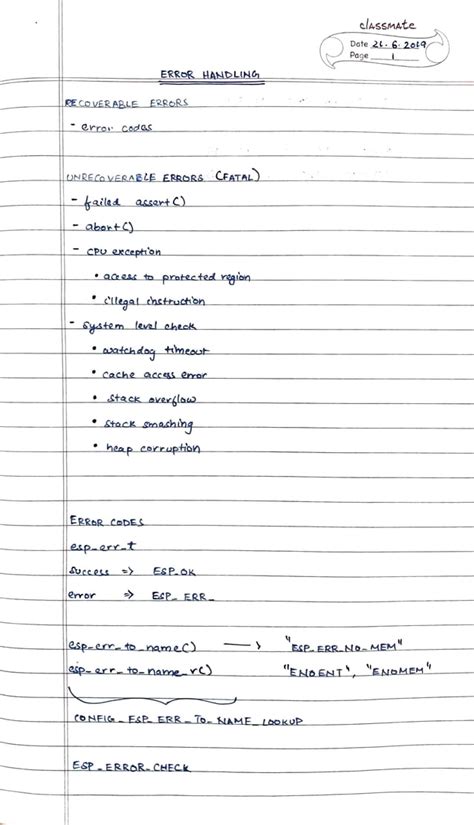 classmate
Date 26.6.2019
Page 1
ERROR HANDLING
RECOVERABLE ERRORS
- error codes
UNRECOVERABLE ERRORS (FATAL)
- failed assert()
- abort()
- CPU exception
• access to protected region
• illegal instruction
- System level check
• watchdog timeout
• cache access error
• stack overflow
• stack smashing
• heap corruption
ERROR CODES
esp_err_t
success => ESP_OK
error => ESP_ERR_
esp_err_to_name() → "ESP_ERR_NO_MEM"
esp_err_to_name_r() "ENOENT", "ENOMEM"
CONFIG_ESP_ERR_TO_NAME_LOOKUP
ESP_ERROR_CHECK